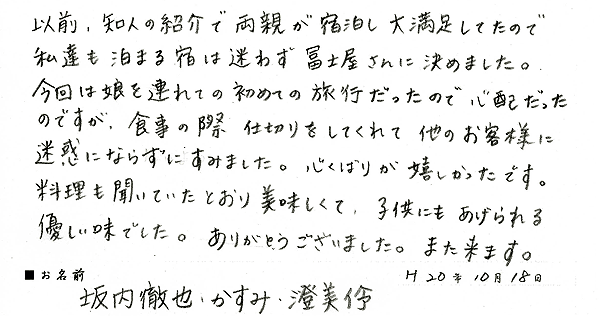 以前、知人の紹介で両親が宿泊し大満足してたので
私達も泊まる宿は迷わず冨士屋さんに決めました。
今回は娘を連れての初めての旅行だったので心配だった
のですが、食事の際 仕切りをしてくれて他のお客様に
迷惑にならずにすみました。心くばりが嬉しかったです。
料理も聞いていたとおり美味しくて、子供にもあげられる
優しい味でした。ありがとうございました。また来ます。
■お名前 H20年10月18日
坂内徹也・かすみ・澄美伶